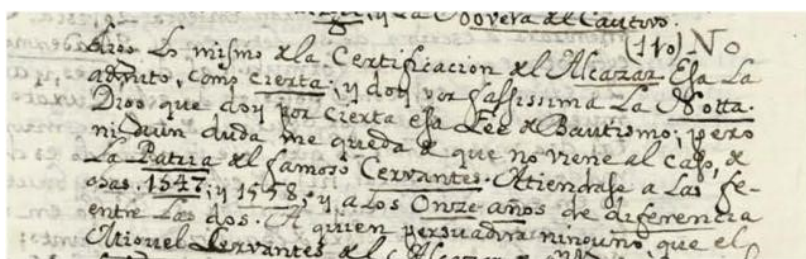 y La Novera del Cautivo.
Lo mismo de la Certificacion del Alcazar (110) No
admito, como cierta; y doy por falsissima La Notta.
que doy por cierta esa Fee de Bautismo; pero
duda me queda de que no viene al caso, de
La Patria del famoso Cervantes. Atiendase a Las fe-
1547; y 1558; y a Los Onze años de diferencia
entre Las dos. A quien persuadira ninguno, que el
Miguel Cervantes del Alcazar